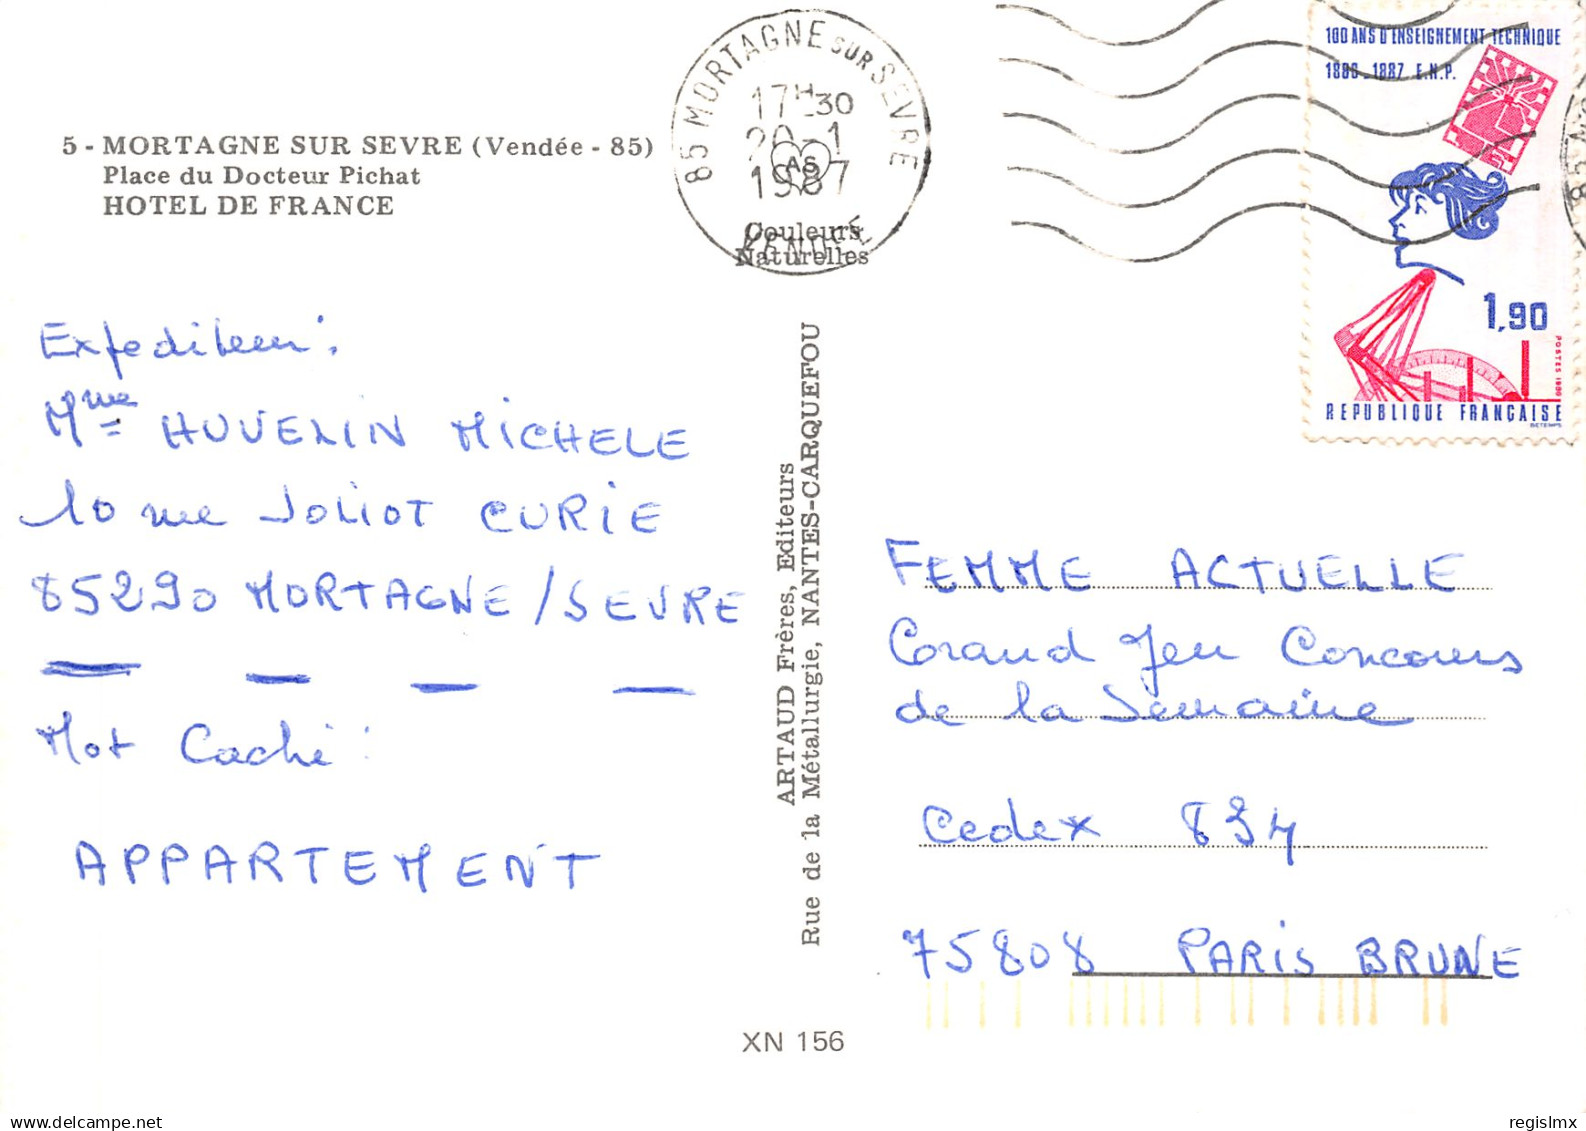 5 - MORTAGNE SUR SEVRE (Vendée - 85)
Place du Docteur Pichat
HOTEL DE FRANCE
85 MORTAGNE SUR SEVRE
17H30
20 - 1
1987
VENDÉE
AS
Couleurs
Naturelles
100 ANS D'ENSEIGNEMENT TECHNIQUE
1886_1887 E.N.P.
1,90
POSTES 1986
REPUBLIQUE FRANÇAISE
BETEMPS
Expediteur :
Mme HUVELIN MICHELE
10 rue JOLIOT CURIE
85290 MORTAGNE / SEVRE
Mot Caché :
APPARTEMENT
ARTAUD Frères, Editeurs
Rue de la Métallurgie, NANTES-CARQUEFOU
FEMME ACTUELLE
Grand Jeu Concours
de la Semaine
Cedex 834
75808 PARIS BRUNE
XN 156
delcampe.net
regislmx